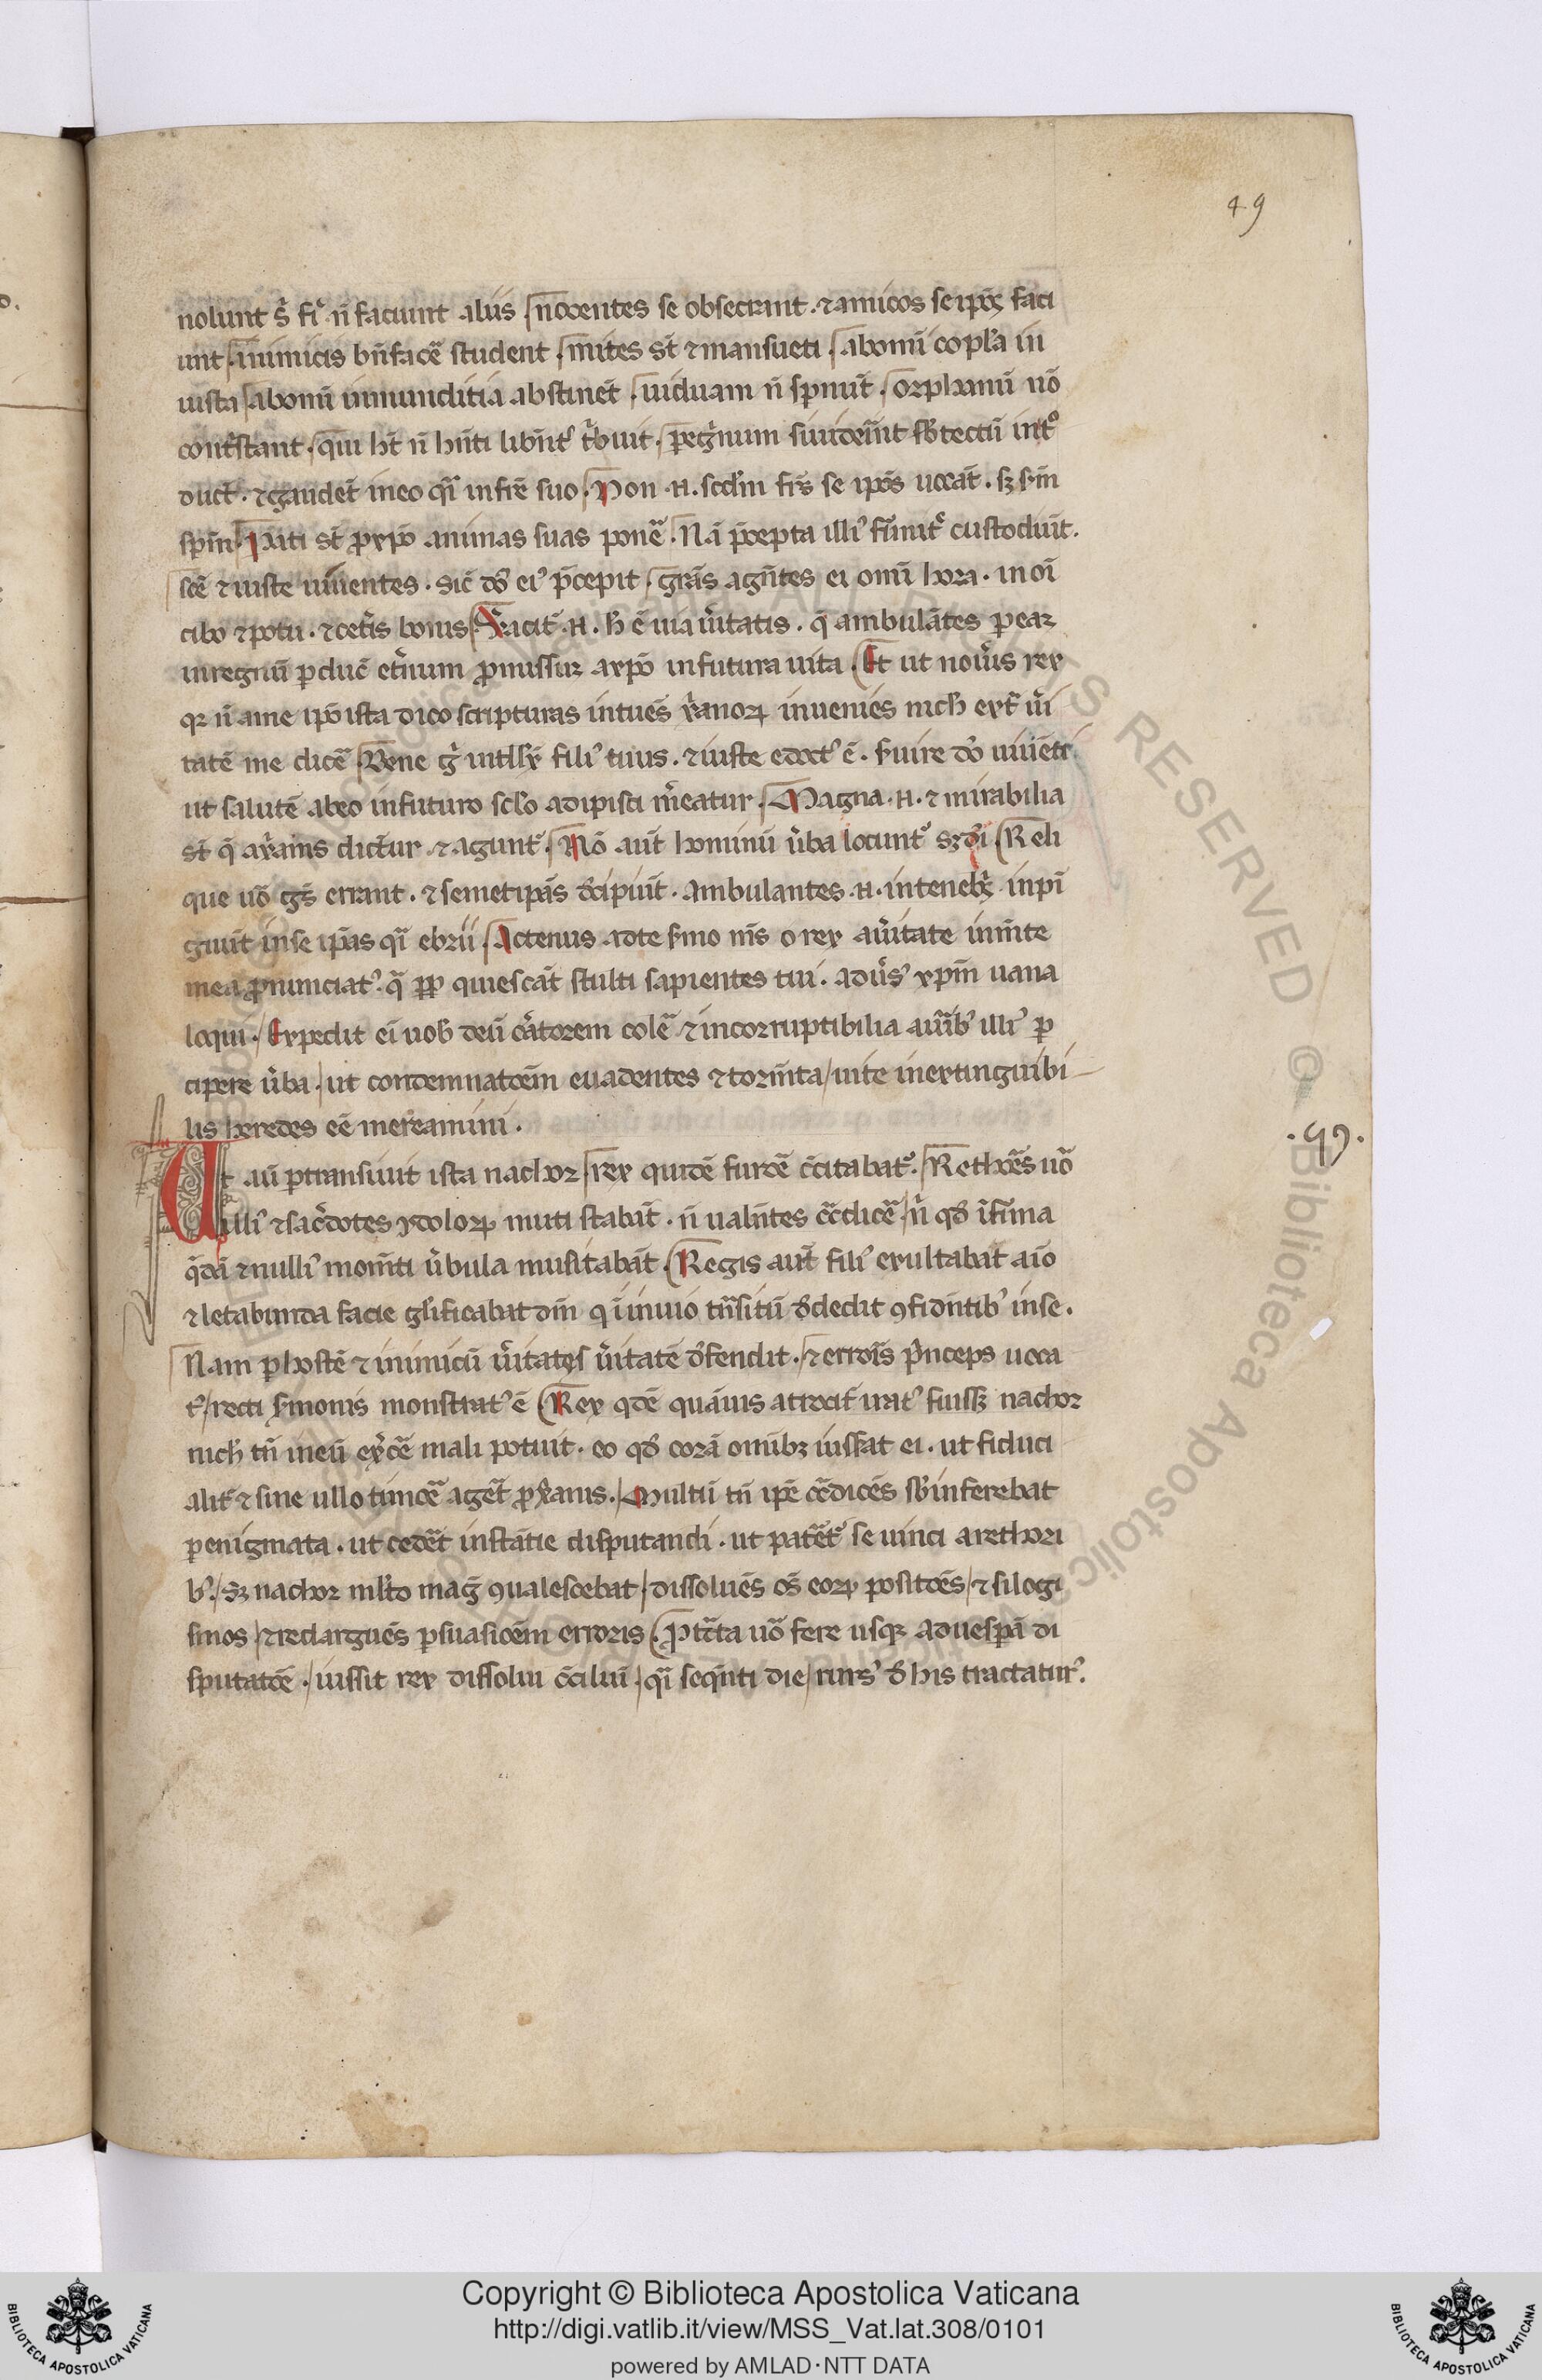 49
nolunt s̉ fi̾ n̄ faciunt aliis nocentes se obsecrant · ⁊ amicos se ipīs faci
unt · inimicis bn̄facē student mites st̄ ⁊ mansueti ab omī copl̓a in
iusta ab omī inmunditia abstinēt uiduam n̄ sꝑnūt orphanū uō
cont̾stant · qui ht̄ n̄ hn̄ti tͥbuit · peg̾num si uideīnt sb̓ tectū int͛o
ducūt · ⁊ gaudēt in eo qͣi in fr̄e suo Non · n̄ · scd̓m frs̄ se ip̄os uocāt · sꝫ scd̓m
sp̄m Pati st̄ ꝓ xp̄o animas suas ponē Nā p̄cepta illiꝰ firmit̾ custodiūt ·
sc̄e ⁊ iuste uiuentes · sic̄ ds̄ eiꝰ p̄cepit grās agn̄tes ei omī hora · in oī
cibo ⁊ potu · ⁊ cet̾is bonis · h̓ ē uia u̾itatis · q̄ ambulātes ꝑ eaꝫ
in regnū ꝑduc̄ et̾num ꝓmissuꝫ a xp̄o in futura uita Et ut nou̾is rex
qꝫ n̄ a me ipō ista dico scripturas intuēs xr̄anoꝝ inuenies nich̓ ext̾ u̾i
tatē me dicē̾ Bene g̾ intllx̄ filiꝰ tuus · ⁊ iuste edoctꝰ ē · s̾uire dō uiuēti
ut salutē ab eo in futuro scl̓o adipisci m̾eatur Magna · n̄ · ⁊ mirabilia
st̄ q̄ a xr̄ianis dicūtur ⁊ agunt̾ Nō aut̄ hominū u̾ba locunt̾ sꝫ dī Reli
que uō gs̄ errant · ⁊ semetip̄as decipiūt · ambulantes · n̄ · in tenebꝫ · inpī
guūt in se ip̄as qͣi ebrii Actenus a dote s̾mo nīs o rex a u̾itate in m̄te
mea ꝓnunciatꝰ q̄ ꝓꝑ quiescāt stulti sapientes tui · adu̾sꝰ xp̄m uana
loqui · Expedit ei uob̓ deū c̾atorem colē̾ ⁊ incorruptibilia aurib̓ illiꝰ ꝑ
cipere u̾ba · ut condemnatōem euadentes ⁊ torm̄ta uite inextinguibi
lis heredes eē mereamini ·
· 49 ·
Ut aū ꝑtransiuit ista nachor rex quidē furoē cc̄itabat̾ · Rethoēs uō
illiꝰ ⁊ sac̾dotes ydoloꝝ muti stabāt · n̄ ualn̄tes cc̄dicē̾ n̾ qd̓ īfima
q̄dā ⁊ nulliꝰ mom̄ti u̾bula musitabāt · Regis aut̄ filiꝰ exultabat aīo
⁊ letabunda facie gl̓ificabat dn̄m q̓ in inuio trāsitū dedit ꝯfidn̄tib̓ in se ·
Nam ꝑ hostē ⁊ inimicū u̾itatis u̾itatē defendit · ⁊ erroris p̾nceps uoca
t̾ recti s̾monis monstratꝰ ē Rex qͥdē quāuis atrocit̾ iratꝰ fuissꝫ nachor
nich̓ tn̄ in eū ex̾cē mali potuit · eo qd̓ corā omībꝫ iusserat ei · ut fiduci
alit̾ ⁊ sine ullo timoē aget̾ ꝓ xr̄ianis · Multū tn̄ ip̄e cc̄dicēs sb̓inferebat
ꝑ enigmata · ut cedēt instātie disputandi · ut patēt̾ se uinci a rethori
b̓ · sꝫ nachor mlt̓o mag̾ ꝯualescebat dissoluēs os̄ eoꝝ positōēs ⁊ silogi
smos ⁊ redarguēs ꝑsuasiōem erroris Ꝓt̾cta uō fere usqꝫ ad uesꝑā di
sputatōē · iussit rex dissolui cc̄iliū · qͣi seqn̄ti die rursꝰ de his tractaturꝰ
Copyright © Biblioteca Apostolica Vaticana
http://digi.vatlib.it/view/MSS_Vat.lat.308/0101
powered by AMLAD·NTT DATA
BIBLIOTECA APOSTOLICA VATICANA
BIBLIOTECA APOSTOLICA VATICANA